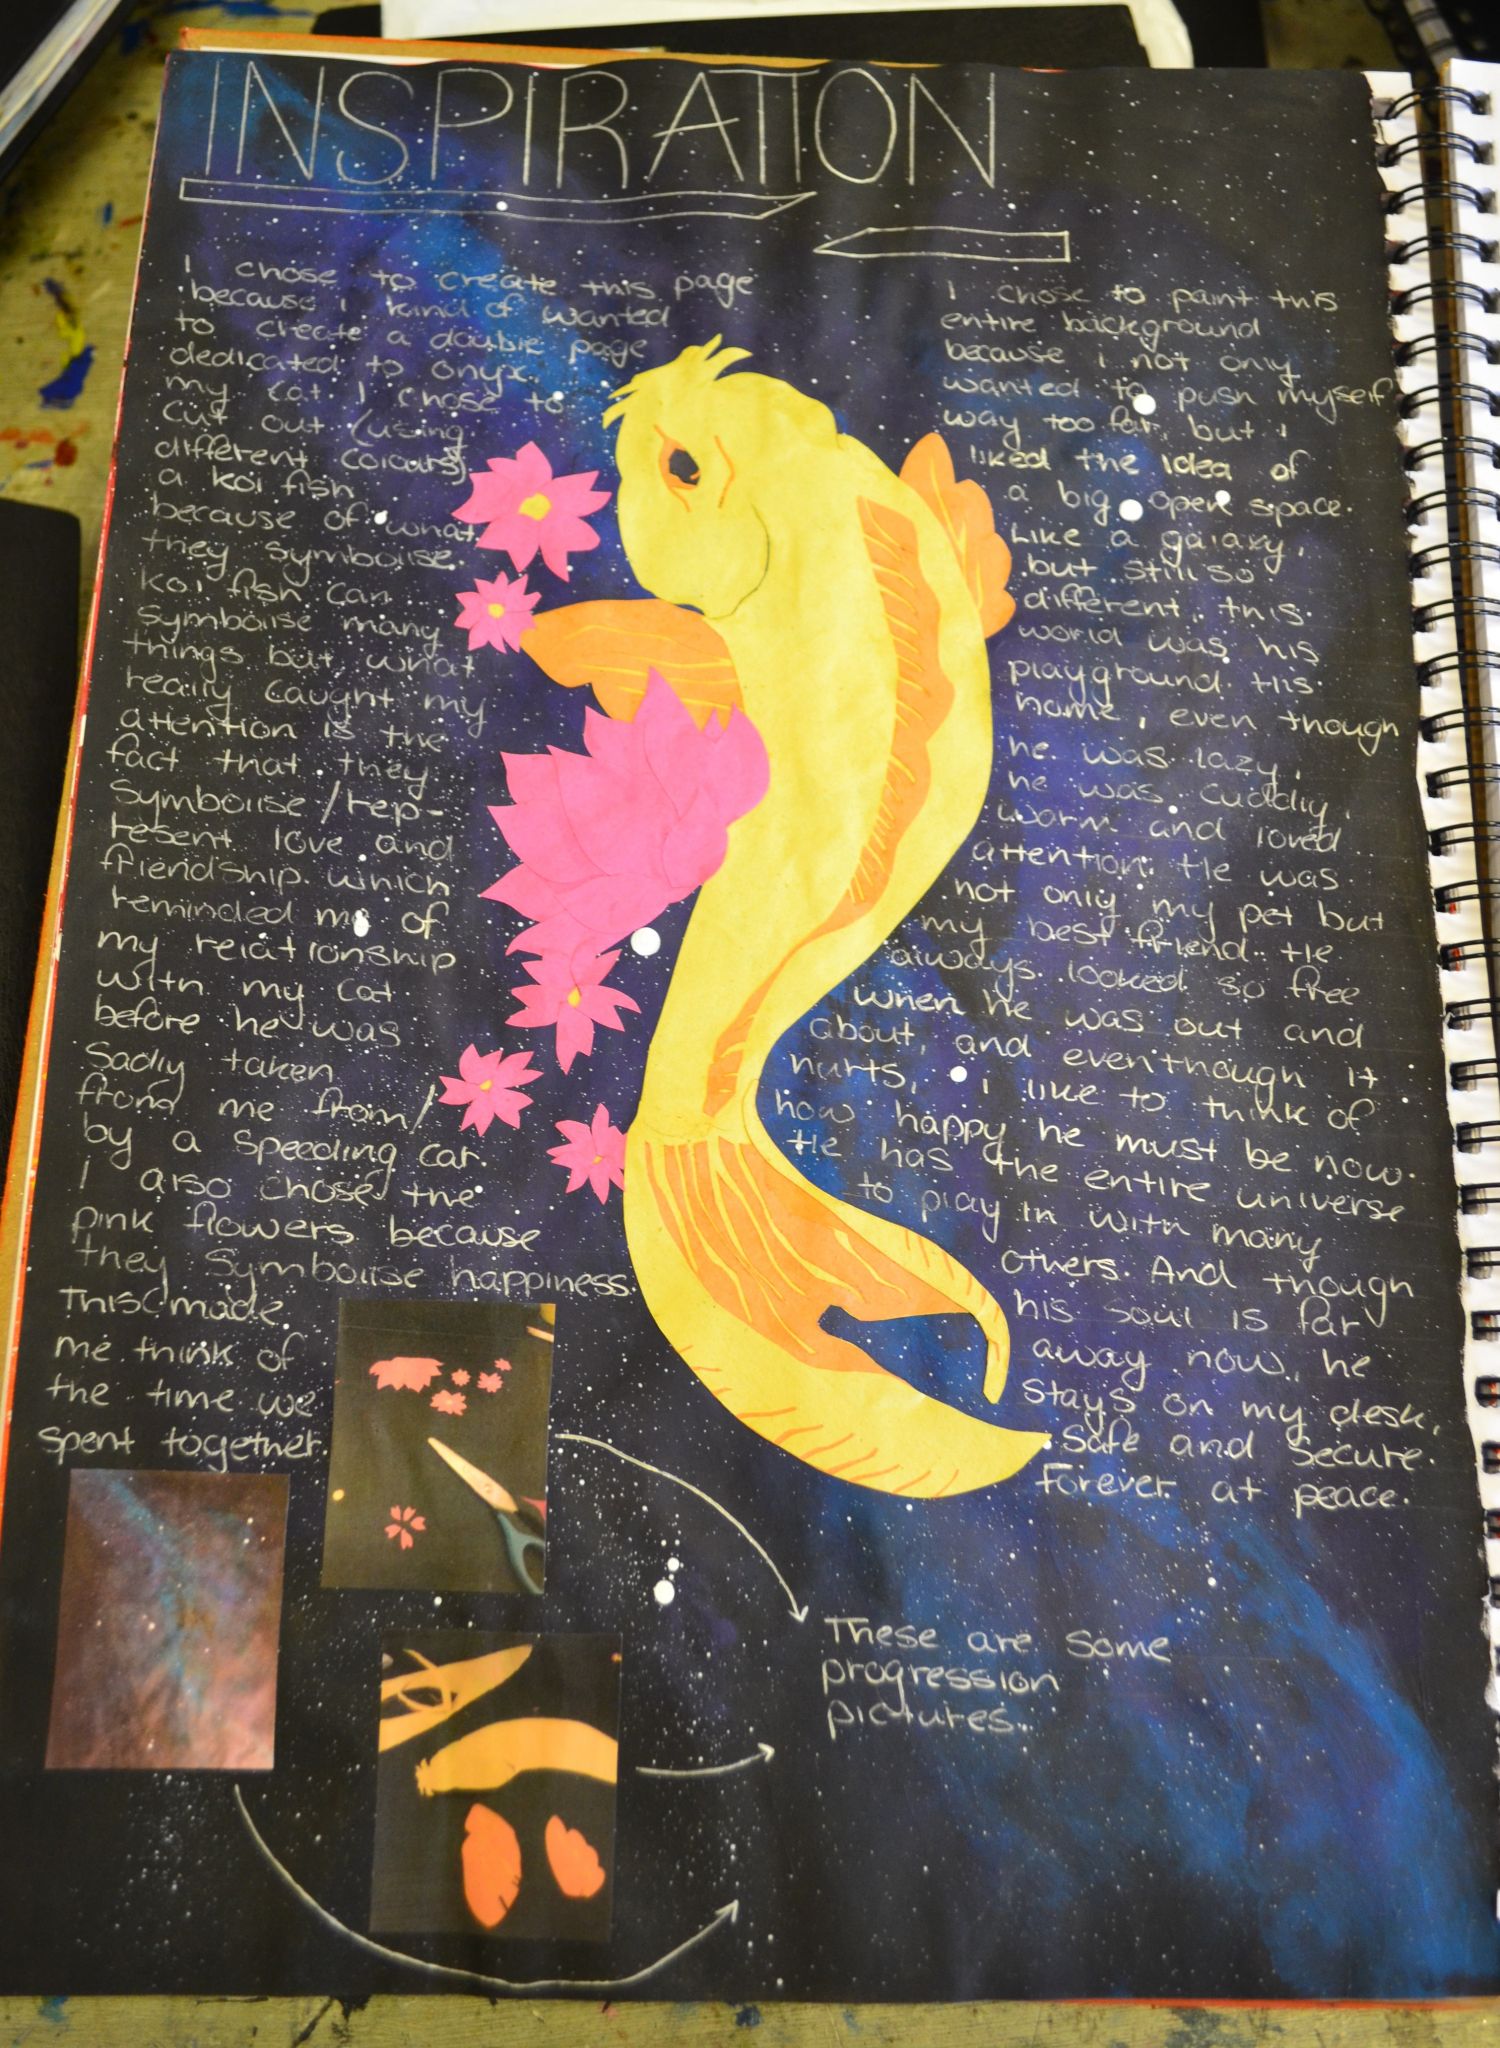 INSPIRATION
I chose to create this page
because i kind of wanted
to create a double page
dedicated to onyx.
my cat. I chose to
cut out (using
different colours)
a koi fish
because of what
they symbolise.
Koi fish can
symbolise many
things but what
really caught my
attention is the
fact that they
symbolise/rep-
resent love and
friendship. which
reminded me of
my relationship
with my cat.
before he was
sadly taken
from me from/
by a speeding car.
I also chose the
pink flowers because
they symbolise happiness.
This made
me think of
the time we
spent together.
I chose to paint this
entire background
because i not only
wanted to push myself
way too far, but i
liked the idea of
a big open space.
Like a galaxy,
but still so
different. this
world was his
playground. His
home, even though
he was lazy,
he was cuddly,
warm and loved
attention. He was
not only my pet but
my best friend. He
always looked so free
when he was out and
about, and eventhough it
hurts, i like to think of
how happy he must be now.
He has the entire universe
to play in with many
others. And though
his soul is far
away now, he
stays on my desk,
safe and secure.
Forever at peace.
These are some
progression
pictures.